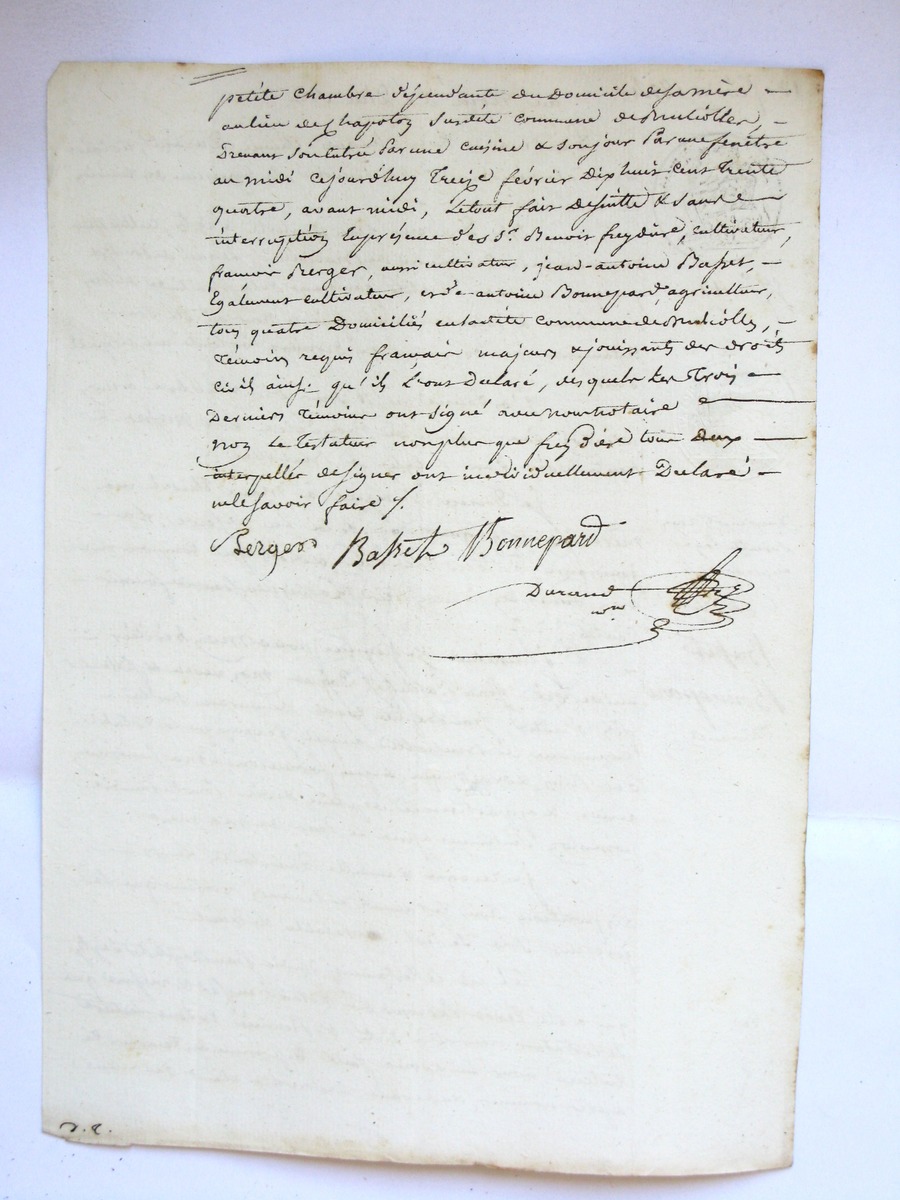 petite chambre dépendante du Domicile de sa mère
au lieu de Chapoton susdite commune de
Prenant son entrée Par une cuisine & son jour Par une fenêtre
au midi cejourd'huy Treize février Dix huit cent Trente
quatre, avant midi, le tout fait de suitte & sans
interruption En présence des Sr. Benoit freydière, cultivateur,
francois Berger, aussi cultivateur, jean-antoine Basset,
Egalement cultivateur, et d'e antoine Bonnepard agriculteur,
tous quatre Domiciliés en ladite commune de
Témoins requis français majeurs & jouissants des droits
civils ainsi qu'ils l'ont Déclaré, desquels Les Trois
Derniers Témoins ont signé avec nous notaire
non Le Testateur non plus que freydière tous deux
interpellés de signer ont individuellement Déclaré
ne le savoir faire /.
Berger Basset Bonnepard
Durand
nre